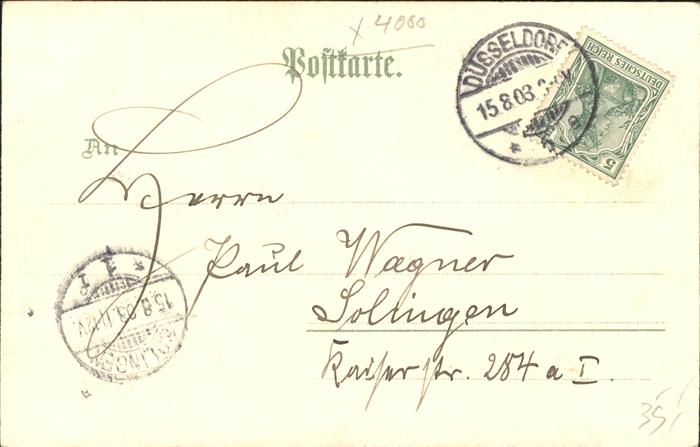 x 4000
Postkarte.
DÜSSELDORF
15.8.03.
DEUTSCHES REICH
5
An
Herrn
Paul Wagner
Solingen
Kaiserstr. 284 a I.
SOLINGEN
15.8.03.
35,